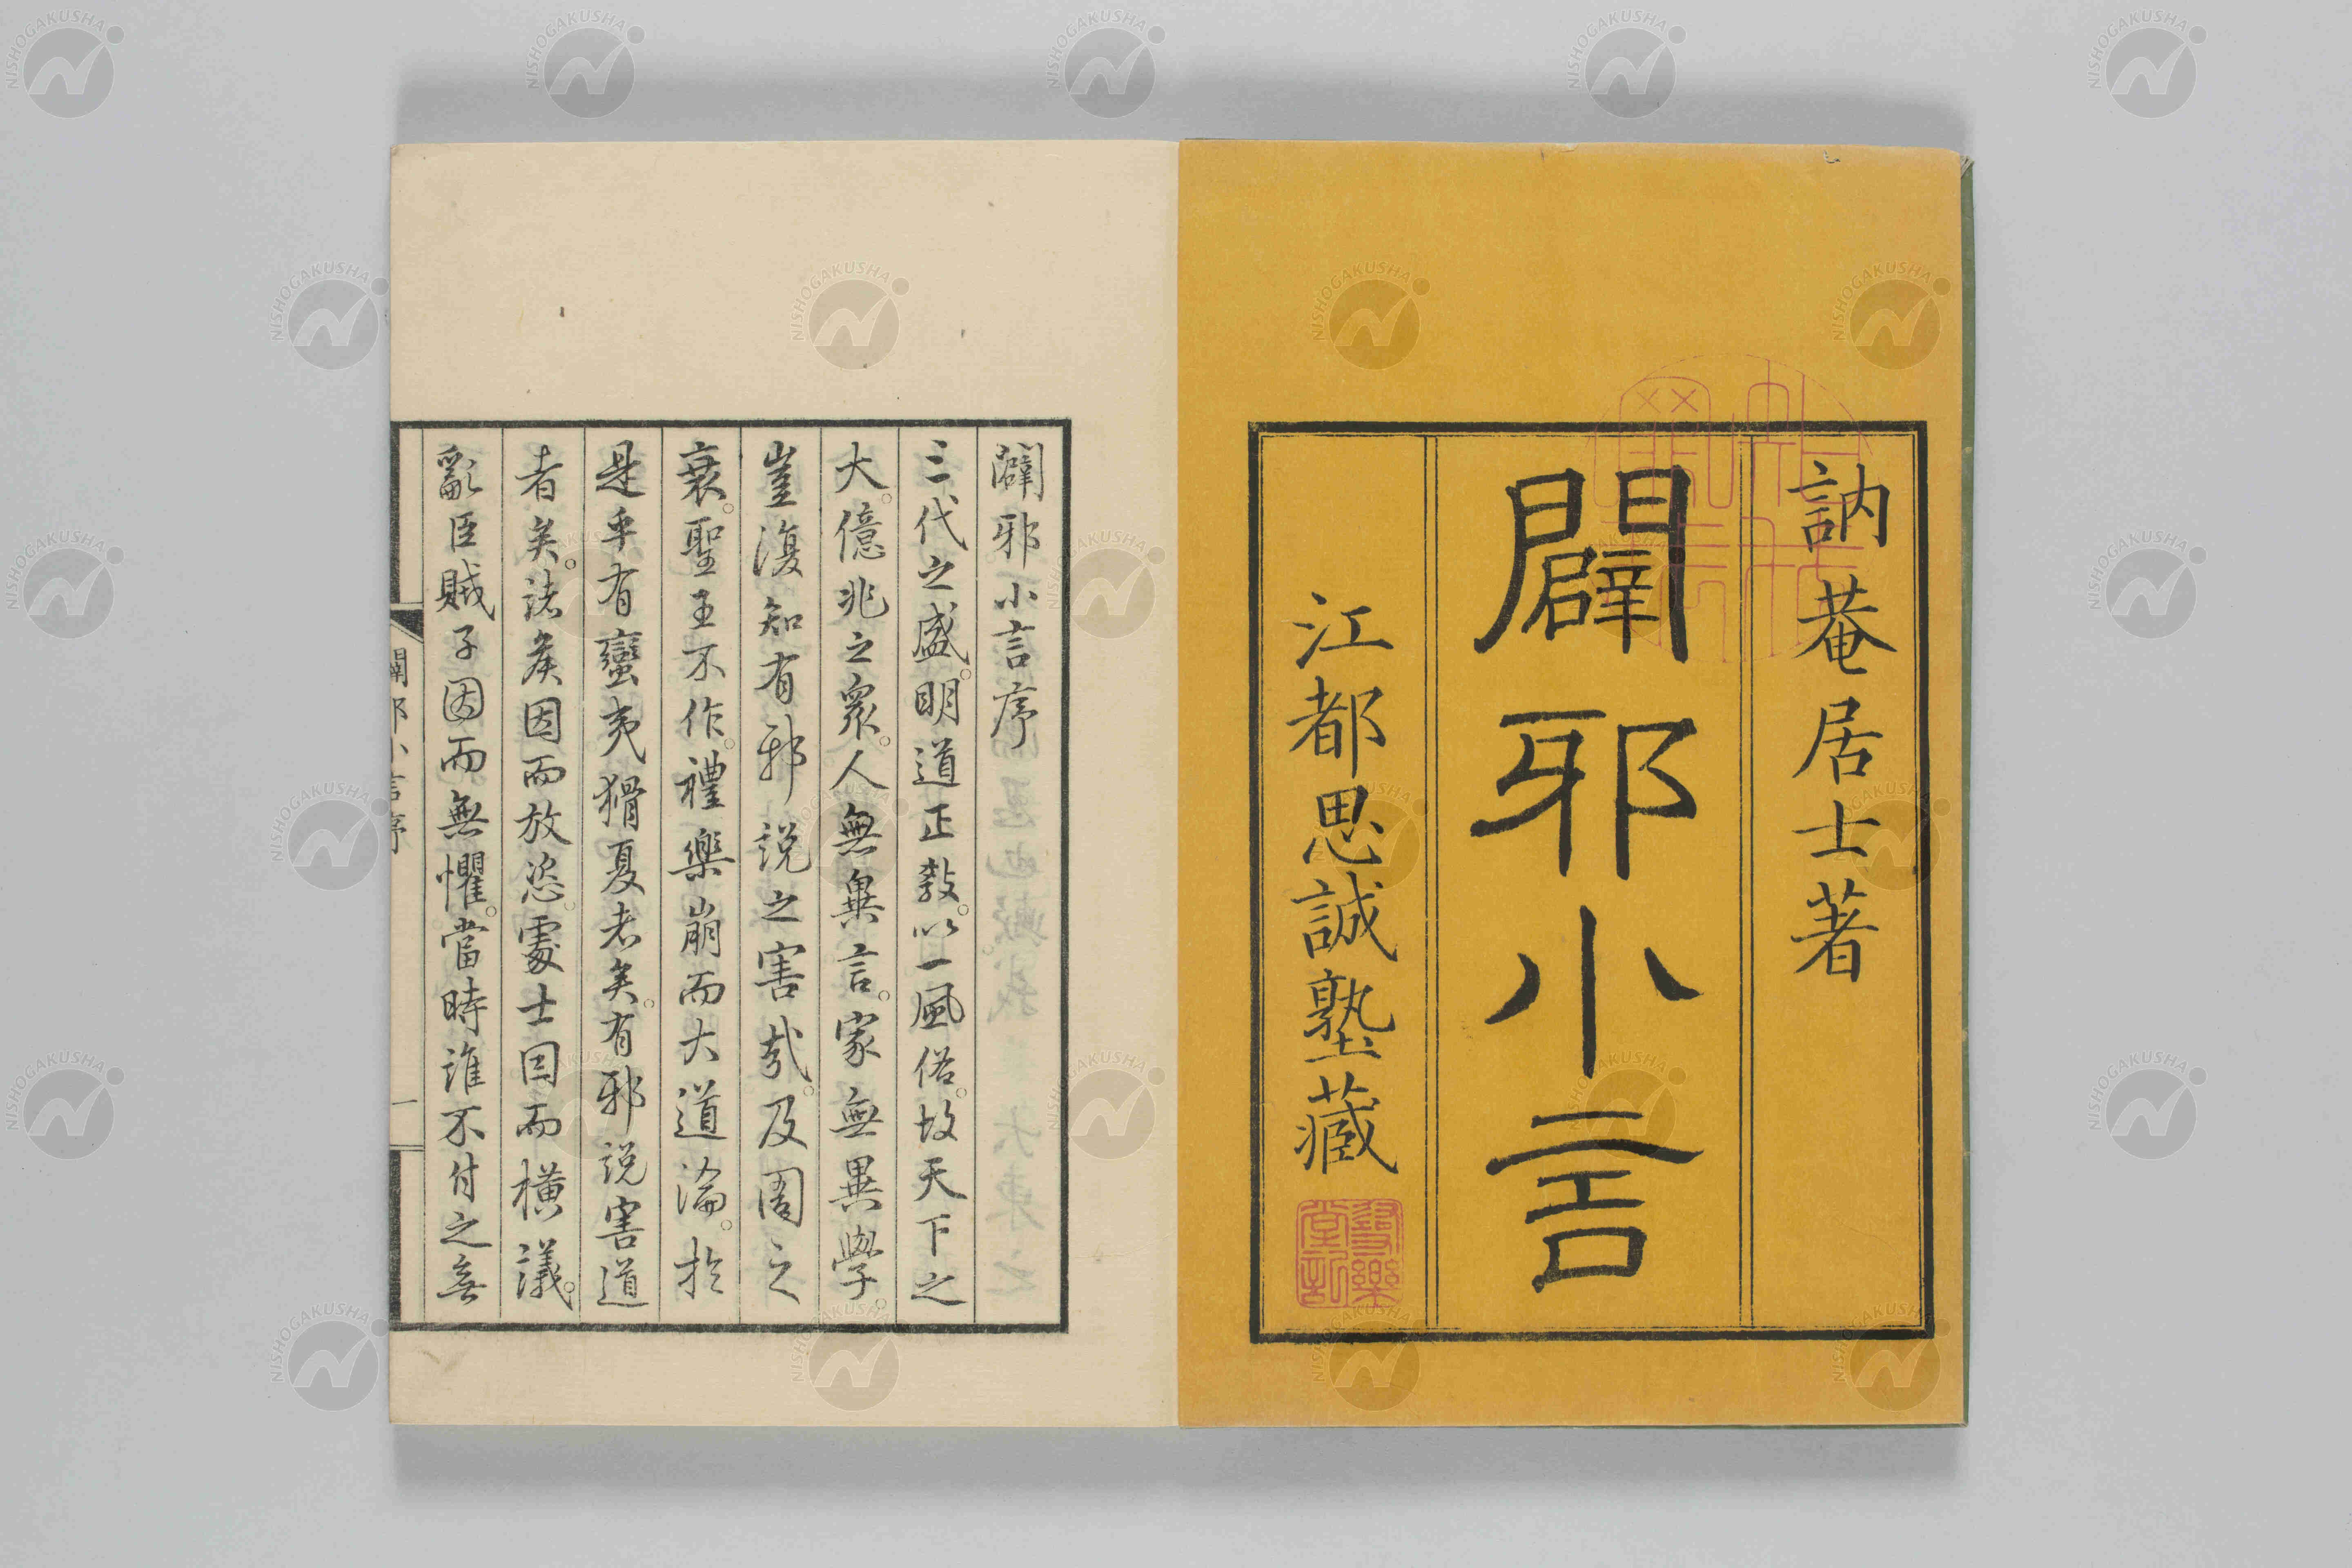 訥菴居士著
闢邪小言
江都思誠塾藏
闢邪小言序
三代之盛。明道正教。以一風俗。故天下之
大。億兆之衆。人無異言。家無異學。
豈復知有邪說之害哉。及周之
衰。聖王不作。禮樂崩而大道淪。於
是乎有蠻夷猾夏者矣。有邪説害道
者矣。諸侯因而放恣。處士因而橫議。
亂臣賊子因而無懼。當時誰不付之無
闢邪小言序
一
NISHOGAKUSHA